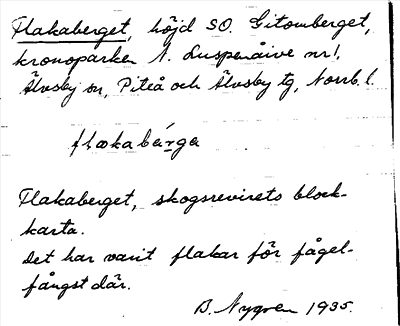 Flakaberget, höjd SO. Gitomberget,
kronoparken N. Luspenåive nr 1,
Älvsby sn, Piteå och Älvsby tg, Norrb. l.
flakabärga
Flakaberget, skogsrevirets block-
karta.
Det har varit flakar för fågel-
fångst där.
B. Nygren 1935.